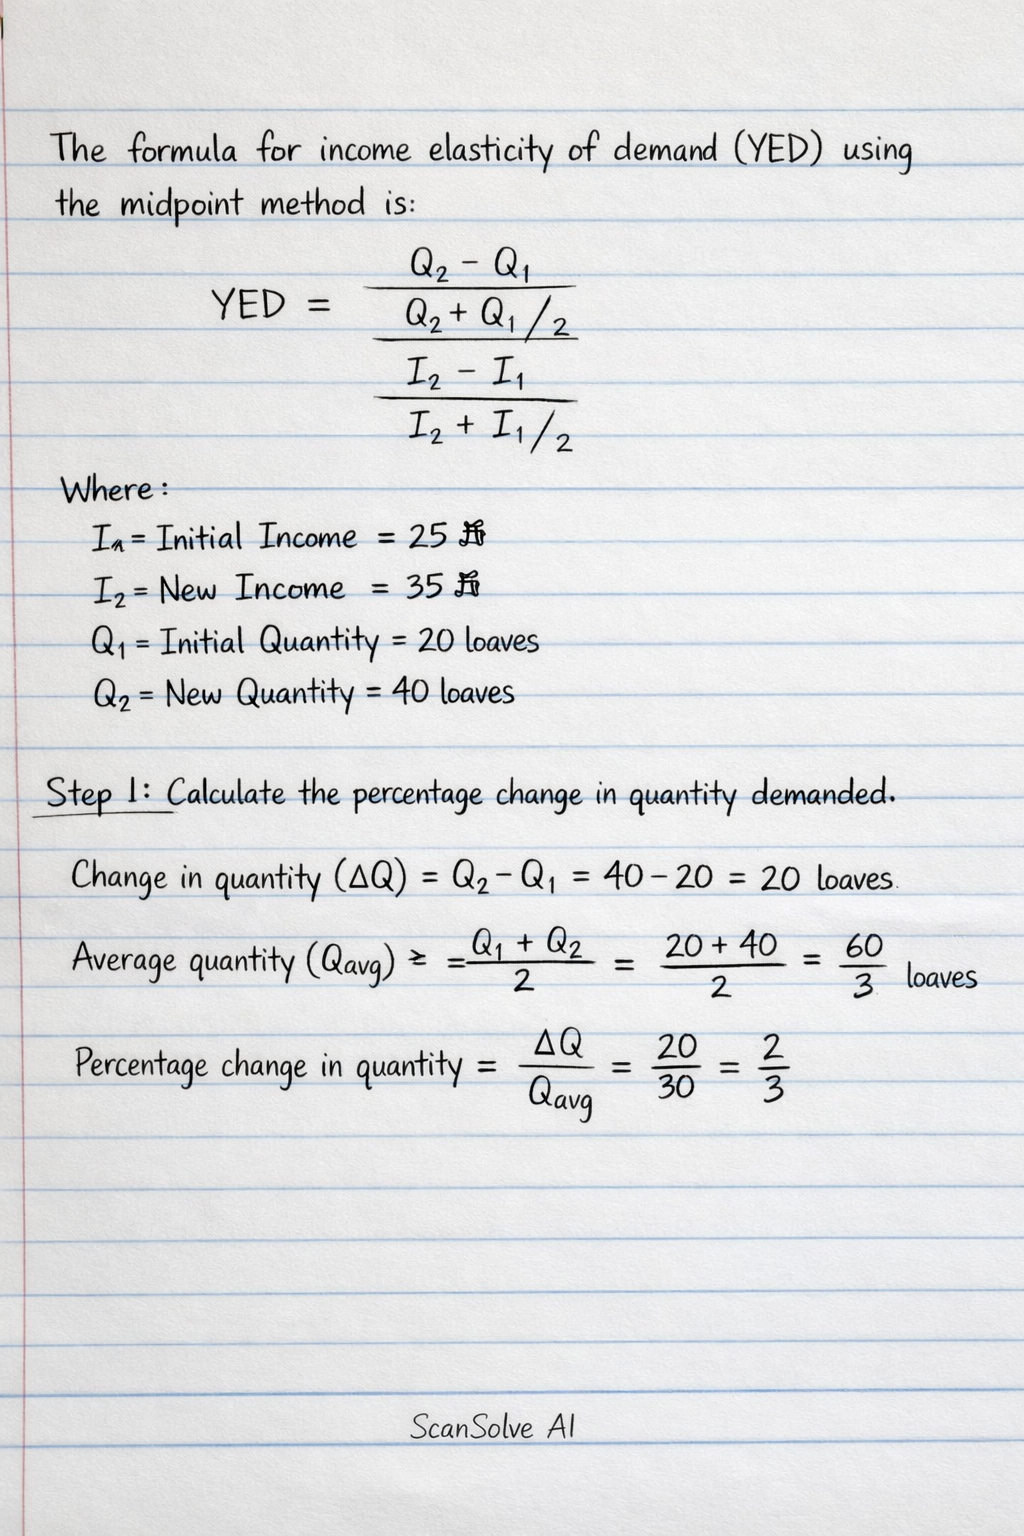 The formula for income elasticity of demand (YED) using
the midpoint method is:
YED =
Q₂ - Q₁
Q₂ + Q₁/2
I₂ - I₁
I₂ + I₁/2
Where:
I = Initial Income = 25
I₂ = New Income = 35
Q₁ = Initial Quantity = 20 loaves
Q₂ = New Quantity = 40 loaves
Step 1: Calculate the percentage change in quantity demanded.
Change in quantity (ΔQ) = Q₂ - Q₁ = 40 - 20 = 20 loaves.
Average quantity (Qavg) ≥ = Q₁ + Q₂ / 2 = 20 + 40 / 2 = 60 / 3 loaves
Percentage change in quantity = ΔQ / Qavg = 20 / 30 = 2 / 3
ScanSolve AI